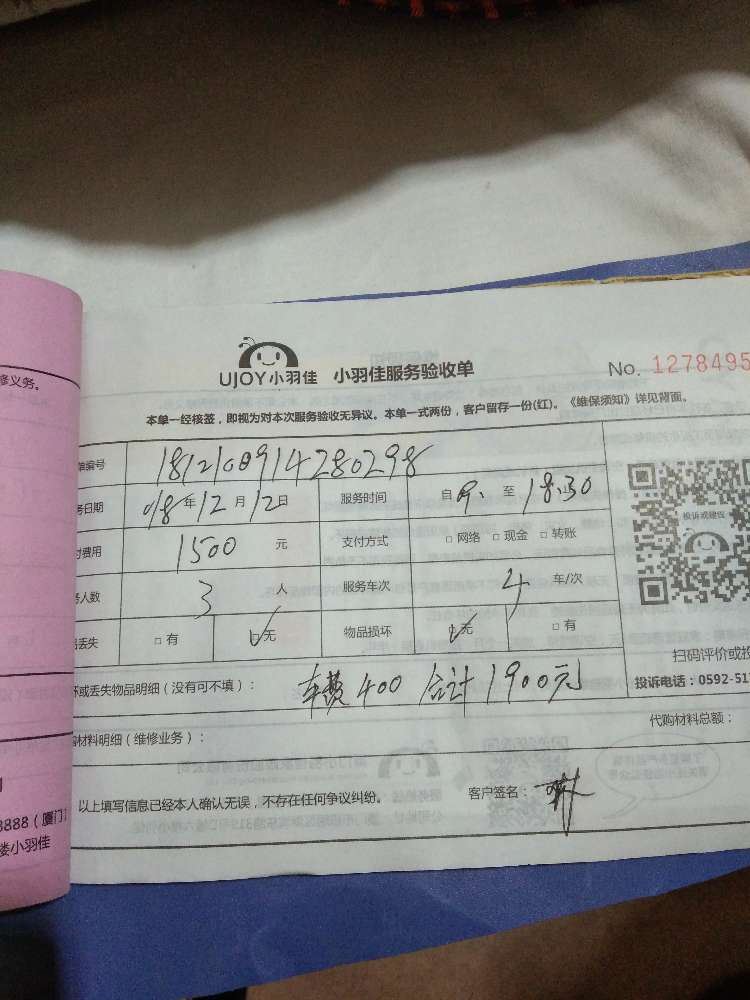 修义务。
UJOY小羽佳 小羽佳服务验收单 No. 1278495
本单一经核签，即视为对本次服务验收无异议。本单一式两份，客户留存一份(红)。《维保须知》详见背面。
编号 1812100914280298
日期 018年12月12日 服务时间 自 9: 至 18:30
费用 1500 元 支付方式 □ 网络 □ 现金 □ 转账
投诉或建议
人数 3 人 服务车次 4 车/次
丢失 □ 有 ☑ 无 物品损坏 ☑ 无 □ 有
扫码评价或投
坏或丢失物品明细（没有可不填）： 车费400 合计1900元
投诉电话：0592-51
材料明细（维修业务）： 代购材料总额：
以上填写信息已经本人确认无误，不存在任何争议纠纷。 客户签名：
8888（厦门
楼小羽佳